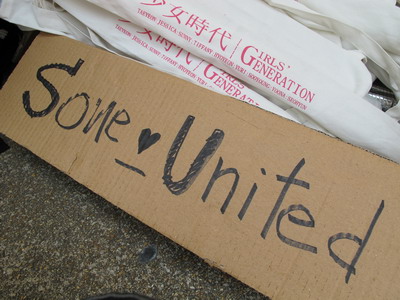 少女時代 | GIRLS' GENERATION
TAEYEON JESSICA SUNNY TIFFANY HYOYEON YURI SOOYOUNG YOONA SEOHYUN
少女時代 | GIRLS' GENERATION
TAEYEON JESSICA SUNNY TIFFANY HYOYEON YURI
Sone ♥ United